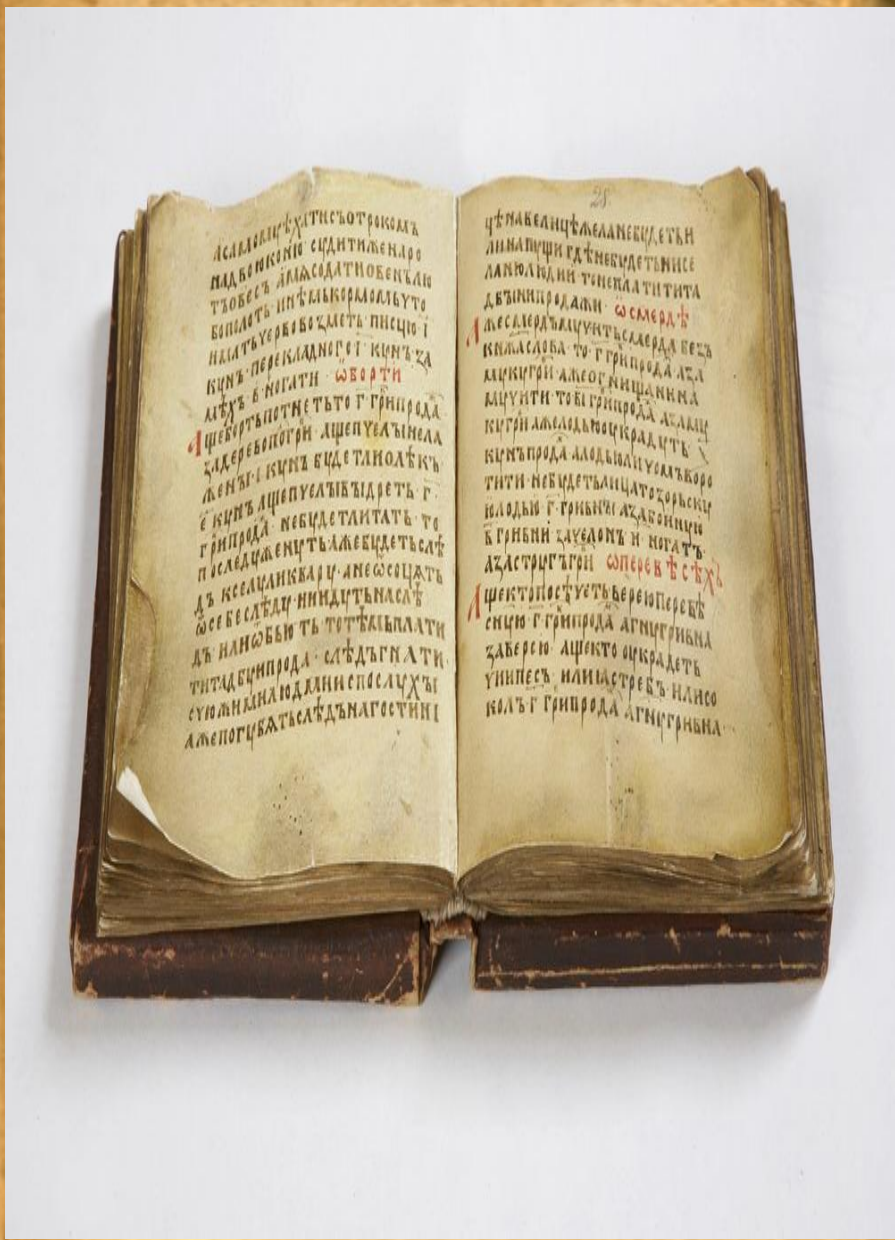 асамомꙋѣхатисъотрокомъ
надвоюконю сꙋдитиженаро
тъовесъ амѧсодатиовенълю
бополоть инѣмькормомьчто
иматьчеревовозметь писцю і
кꙋнъ перекладного і кꙋнъ за
мѣхъ в ногати ѡборти
Ащебортьпотнетьто г грипрода
задеревопогри ащепчелывола
жены і кꙋнъ бꙋдетлиолѣкъ
е кꙋнъ ащепчелывыдреть г
грипрода небꙋдетлитать то
последꙋженꙋтьажебꙋдетьслѣ
дъ кселꙋликварꙋ анеѡсочать
ѡсебеслѣдꙋ ниидꙋтьнаслѣ
дъ илиѡбьють тотѣмьплати
титадбꙋипрода слѣдъгнати
счюжимилюдминспослꙋхы
ажепогꙋбѧтьслѣдънагостини
28
цѣнавелицѣжеланебꙋдетьи
лиалапꙋщигдѣнебꙋдетьнисе
ланилюдии тонеплатитита
дбынипродажи ѡсмердѣ
Ажесмердъмꙋчитьсмердабезъ
кнѧжаслова то г грипрода аза
мꙋкꙋгри ажеогнищанина
мꙋчити то ві грипрода азамꙋ
кꙋгри ажелодьюꙋкрадꙋть
кꙋнъпрода алодьюличомъворо
тити небꙋдетьлицатозорьскꙋ
юлодью г гривны азабоиную
в гривни зачелонъ н ногатъ
азастрꙋгъгри ѡперевѣсѣхъ
Ащектопосѣчетьвереюперевѣ
снꙋю г грипрода агнꙋгривна
заверею ащекто оукрадеть
чиипесъ илиꙗстребъ илисо
колъ г грипрода агнꙋгривна